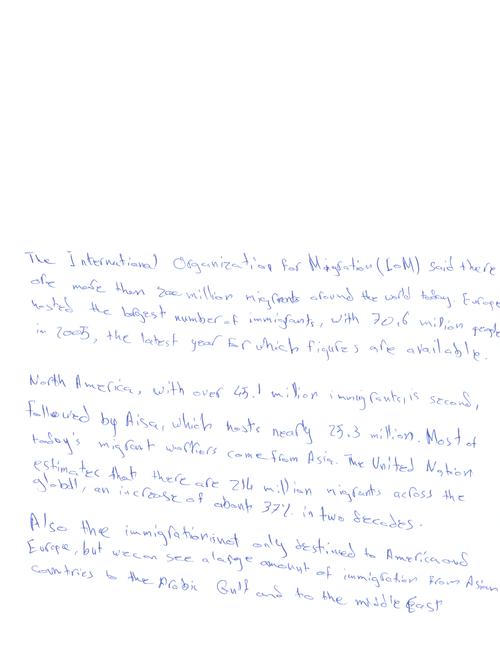 The International Organization for Migration (IoM) said there
are more than 200 million migrants around the world today. Europe
hosted the largest number of immigrants, with 70.6 million people
in 2005, the latest year for which figures are available.
North America, with over 45.1 million immigrants, is second,
followed by Aisa, which hosts nearly 25.3 million. Most of
today's migrant workers come from Asia. The United Nation
estimates that there are 214 million migrants across the
globll, an increase of about 37% in two decades.
Also the immigration is not only destined to America and
Europe, but we can see a large amount of immigration from Asian
countries to the Arabic Gulf and to the middle East